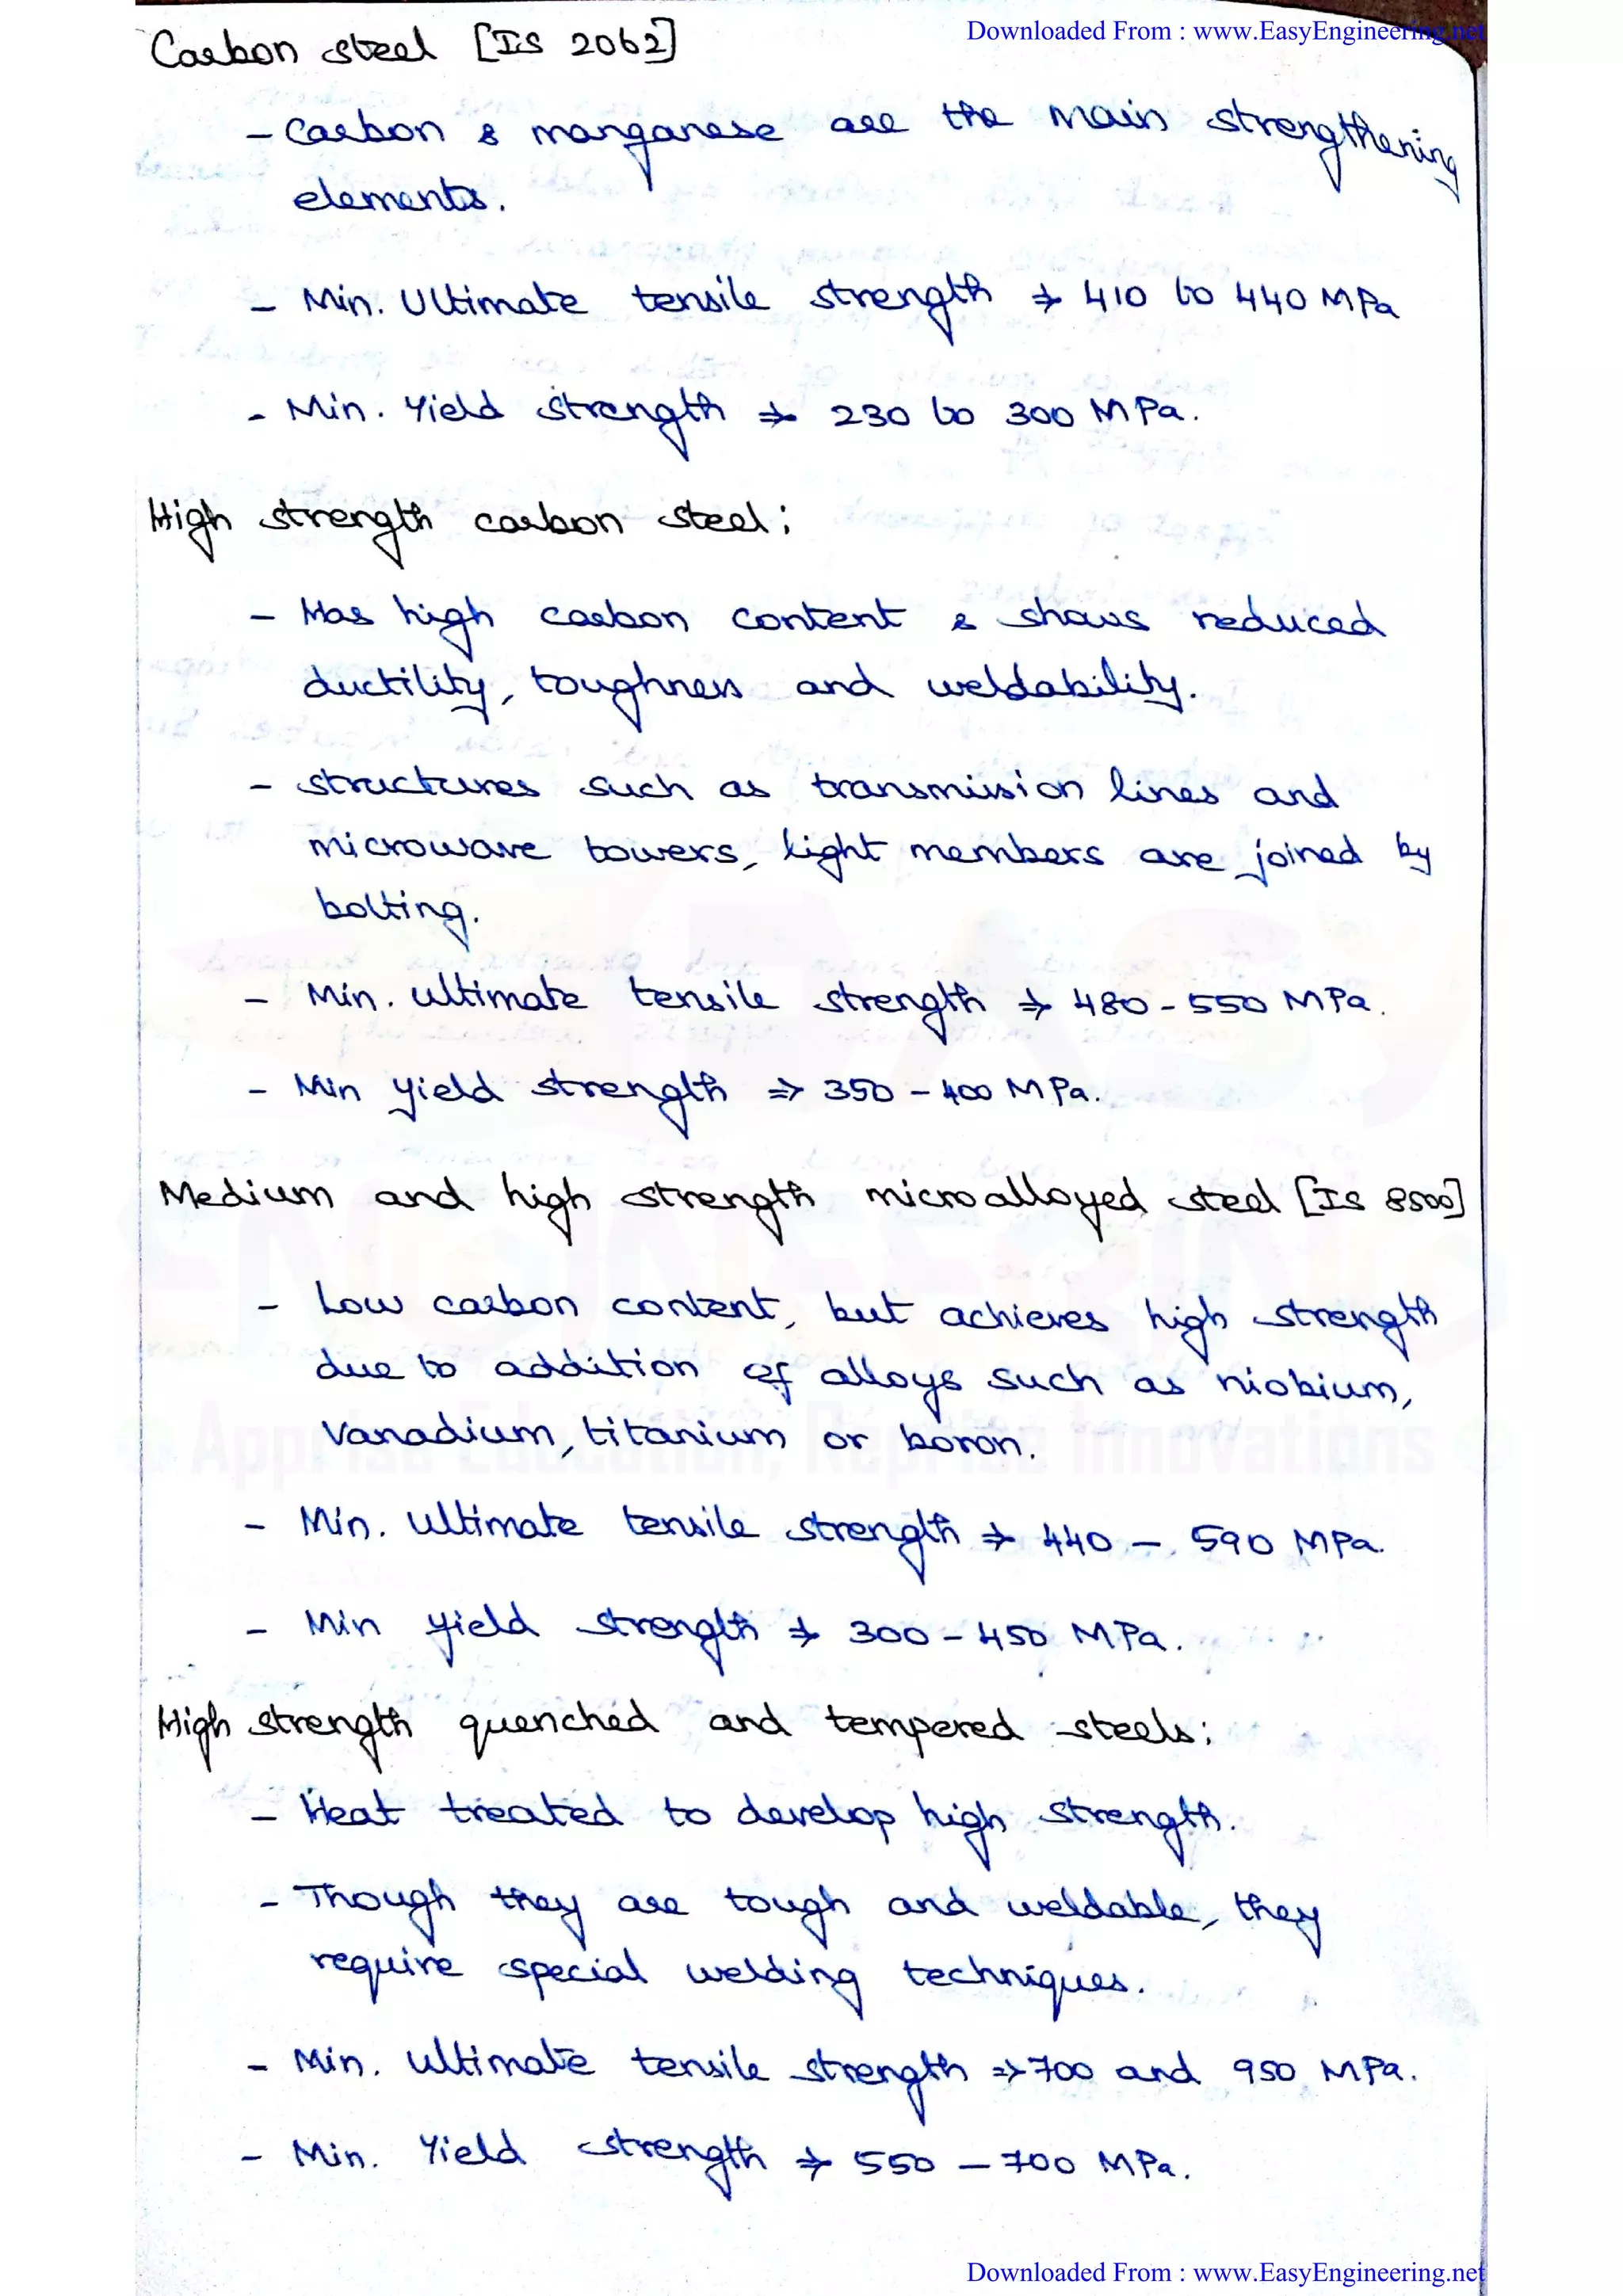 Downloaded From : www.EasyEngineering.net
Carbon steel [IS 2062]
- Carbon & manganese are the main strengthening
elements.
- Min. Ultimate tensile strength ⇒ 410 to 440 MPa
- Min. Yield strength ⇒ 230 to 300 MPa.
High strength carbon steel:
- Has high carbon content & shows reduced
ductility, toughness and weldability.
- structures such as transmission lines and
microwave towers, light members are joined by
bolting.
- Min. ultimate tensile strength ⇒ 480 - 550 MPa.
- Min yield strength ⇒ 350 - 400 MPa.
Medium and high strength microalloyed steel [IS 8500]
- Low carbon content, but achieves high strength
due to addition of alloys such as niobium,
Vanadium, titanium or boron.
- Min. ultimate tensile strength ⇒ 440 - 590 MPa.
- Min yield strength ⇒ 300 - 450 MPa.
High strength quenched and tempered steels:
- Heat treated to develop high strength.
- Though they are tough and weldable, they
require special welding techniques.
- Min. ultimate tensile strength ⇒ 700 and 950 MPa.
- Min. Yield strength ⇒ 550 - 700 MPa.
Downloaded From : www.EasyEngineering.net